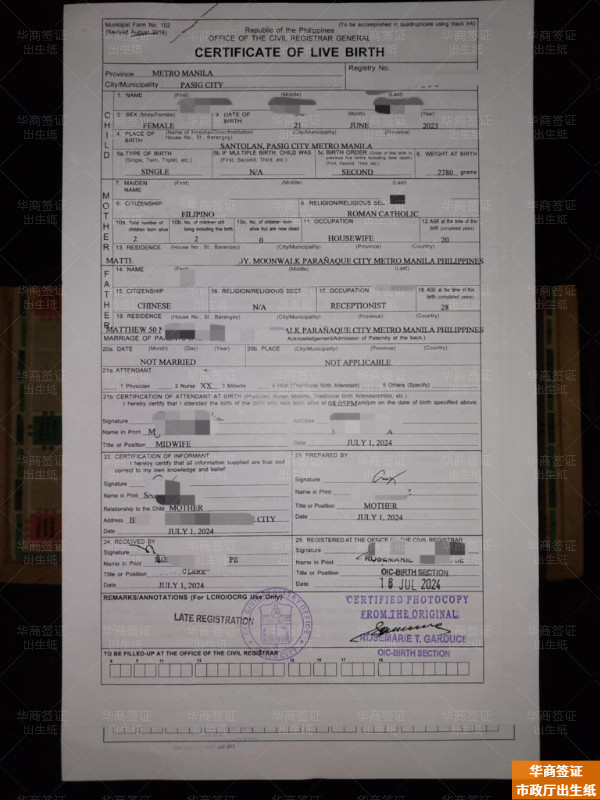 Municipal Form No. 102
(Revised August 2016)
(To be accomplished in quadruplicate using black ink)
Republic of the Philippines
OFFICE OF THE CIVIL REGISTRAR GENERAL
CERTIFICATE OF LIVE BIRTH
Province METRO MANILA
Registry No.
City/Municipality PASIG CITY
CHILD
1. NAME (First) (Middle) (Last)
2 SEX (Male/Female) FEMALE
3 DATE OF BIRTH 21 (Month) JUNE (Year) 2023
4. PLACE OF BIRTH (Name of Hospital/Clinic/Institution/ House No., St., Barangay) (City/Municipality) (Province)
SANTOLAN, PASIG CITY METRO MANILA
5a TYPE OF BIRTH (Single, Twin, Triplet, etc.) SINGLE
5b IF MULTIPLE BIRTH, CHILD WAS (First, Second, Third, etc.) N/A
5c BIRTH ORDER (Order of this birth to previous live births including fetal death) (First, Second, Third, etc.) SECOND
6. WEIGHT AT BIRTH 2780 grams
MOTHER
7. MAIDEN NAME (First) (Middle) (Last)
8. CITIZENSHIP FILIPINO
9 RELIGION/RELIGIOUS SEC ROMAN CATHOLIC
10a. Total number of children born alive 2
10b. No. of children still living including this birth 2
10c. No. of children born alive but are now dead 0
11 OCCUPATION HOUSEWIFE
12 AGE at the time of this birth (completed years) 20
13. RESIDENCE (House No., St., Barangay) (City/Municipality) (Province) (Country)
MATT MOONWALK PARAÑAQUE CITY METRO MANILA PHILIPPINES
FATHER
14. NAME (Middle) (Last)
15. CITIZENSHIP CHINESE
16. RELIGION/RELIGIOUS SECT N/A
17. OCCUPATION RECEPTIONIST
18. AGE at the time of this birth (completed years) 28
19. RESIDENCE (House No., St., Barangay) (City/Municipality) (Province) (Country)
MATTHEW 50 ALK PARAÑAQUE CITY METRO MANILA PHILIPPINES
MARRIAGE OF PA Acknowledgement/Admission of Paternity at the back.)
20a. DATE (Month) (Day) (Year) NOT MARRIED
20b. PLACE (City/Municipality) (Province) (Country) NOT APPLICABLE
21a. ATTENDANT
1 Physician 2 Nurse XX 3 Midwife 4 Hilot (Traditional Birth Attendant) 5 Others (Specify)
21b. CERTIFICATION OF ATTENDANT AT BIRTH (Physician, Nurse, Midwife, Traditional Birth Attendant/Hilot, etc.)
I hereby certify that I attended the birth of the child who was born alive at 08:05PM am/pm on the date of birth specified above.
Signature
Address
Name in Print M
Title or Position MIDWIFE
Date JULY 1, 2024
22. CERTIFICATION OF INFORMANT
I hereby certify that all information supplied are true and correct to my own knowledge and belief.
Signature
Name in Print
Relationship to the Child MOTHER
Address CITY
Date JULY 1, 2024
23. PREPARED BY
Signature
Name in Print
Title or Position MOTHER
Date JULY 1, 2024
24. RECEIVED BY
Signature
Name in Print PE
Title or Position CLERK
Date JULY 1, 2024
25. REGISTERED AT THE OFFICE OF THE CIVIL REGISTRAR
Signature
Name in Print ROSEMARIE
Title or Position OIC-BIRTH SECTION
Date 18 JUL 2024
REMARKS/ANNOTATIONS (For LCRO/OCRG Use Only)
LATE REGISTRATION
CERTIFIED PHOTOCOPY
FROM THE ORIGINAL
ROSEMARIE T. GARDUCE
OIC-BIRTH SECTION
TO BE FILLED-UP AT THE OFFICE OF THE CIVIL REGISTRAR
华商签证
出生纸
华商签证
市政厅出生纸